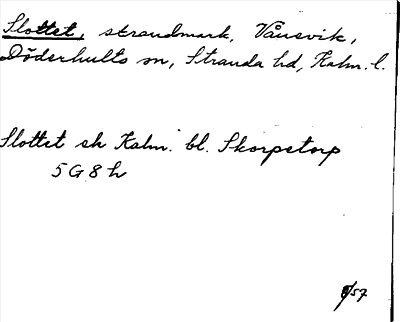 Slottet, strandmark, Vånevik,
Döderhults sn, Stranda hd, Kalm. l.
Slottet sk Kalm. bl. Skorpetorp
5 G 8 h
/57